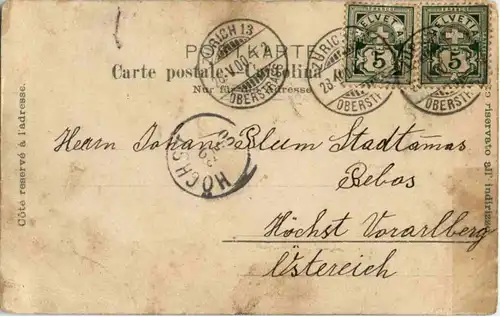 POSTKARTE
Carte postale. Cartolina
Nur für die Adresse
HELVETIA
5
HELVETIA
5
ZÜRICH 13
OBERSTRASS
ZÜRICH
OBERSTR.
OBERSTR
HÖCHST
Côté reservé à l'adresse.
riservato all' indirizzo
Herrn Johann Blum Stadtamas
Bebas
Höchst Vorarlberg
Östereich